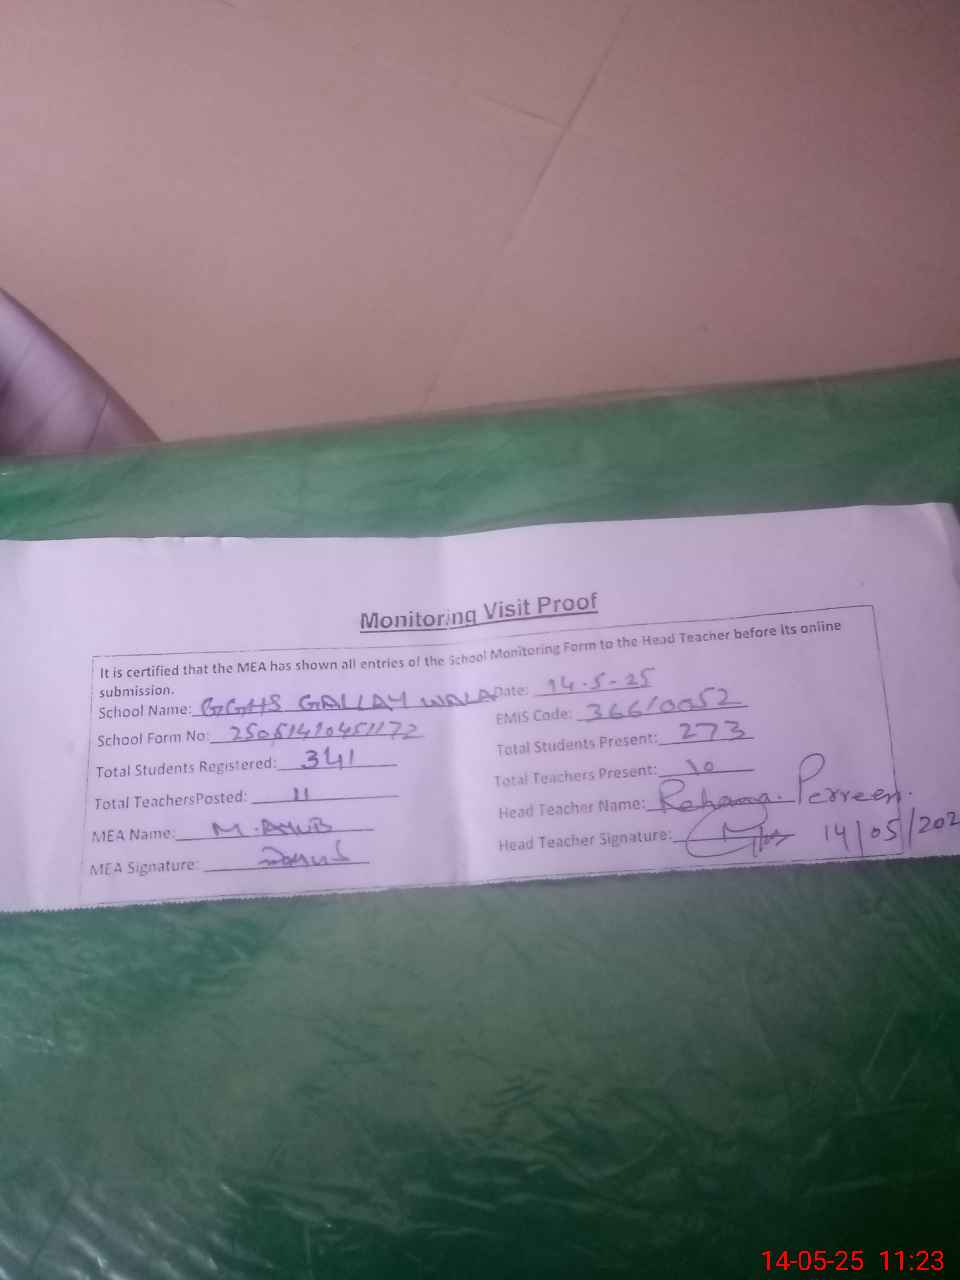 Monitoring Visit Proof
It is certified that the MEA has shown all entries of the School Monitoring Form to the Head Teacher before its online
submission.
School Name: GGHS GALLAY WALA Date: 14-5-25
School Form No: EMIS Code: 36610052
Total Students Registered: 341 Total Students Present: 273
Total TeachersPosted: 11 Total Teachers Present: 10
MEA Name: M. AYUB Head Teacher Name: Rehana Perveen.
MEA Signature: Head Teacher Signature: 14/05/202
14-05-25 11:23